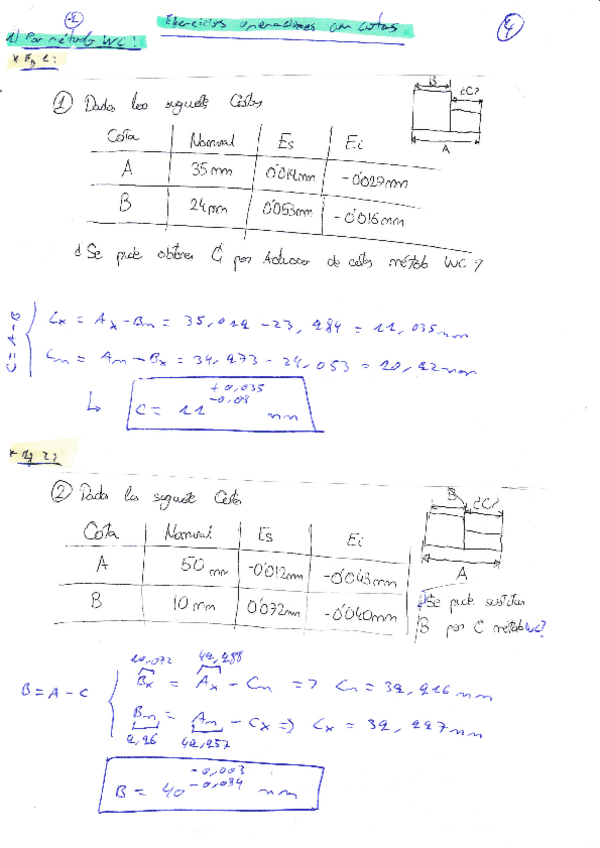 -1-
Ejercicios operaciones con cotas
4
1) Por método WC:
* Ej 1:
① Dadas las siguiente Cotas
B
¿C?
A
Cota Nominal Es Ei
A 35mm 0'014mm -0'027mm
B 24mm 0'053mm -0'016mm
¿Se puede obtener C por Aducción de cotas método WC?
C = A - B
Cx = Ax - Bn = 35,019 - 23,984 = 11,035 mm
Cn = An - Bx = 34,973 - 24,053 = 10,92 mm
↳ C = 11 +0,035 -0,08 mm
* Ej 2:
② Dadas las siguiente Cotas
B
¿C?
A
Cota Nominal Es Ei
A 50 mm -0'012mm -0'043mm
B 10 mm 0'072mm -0'040mm
¿Se puede sustituir
B por C método WC?
10,072 49,988
B = A - C
Bx = Ax - Cn => Cn = 39,916 mm
Bn = An - Cx => Cx = 39,997 mm
9,96 49,957
B = 40 -0,003 -0,084 mm